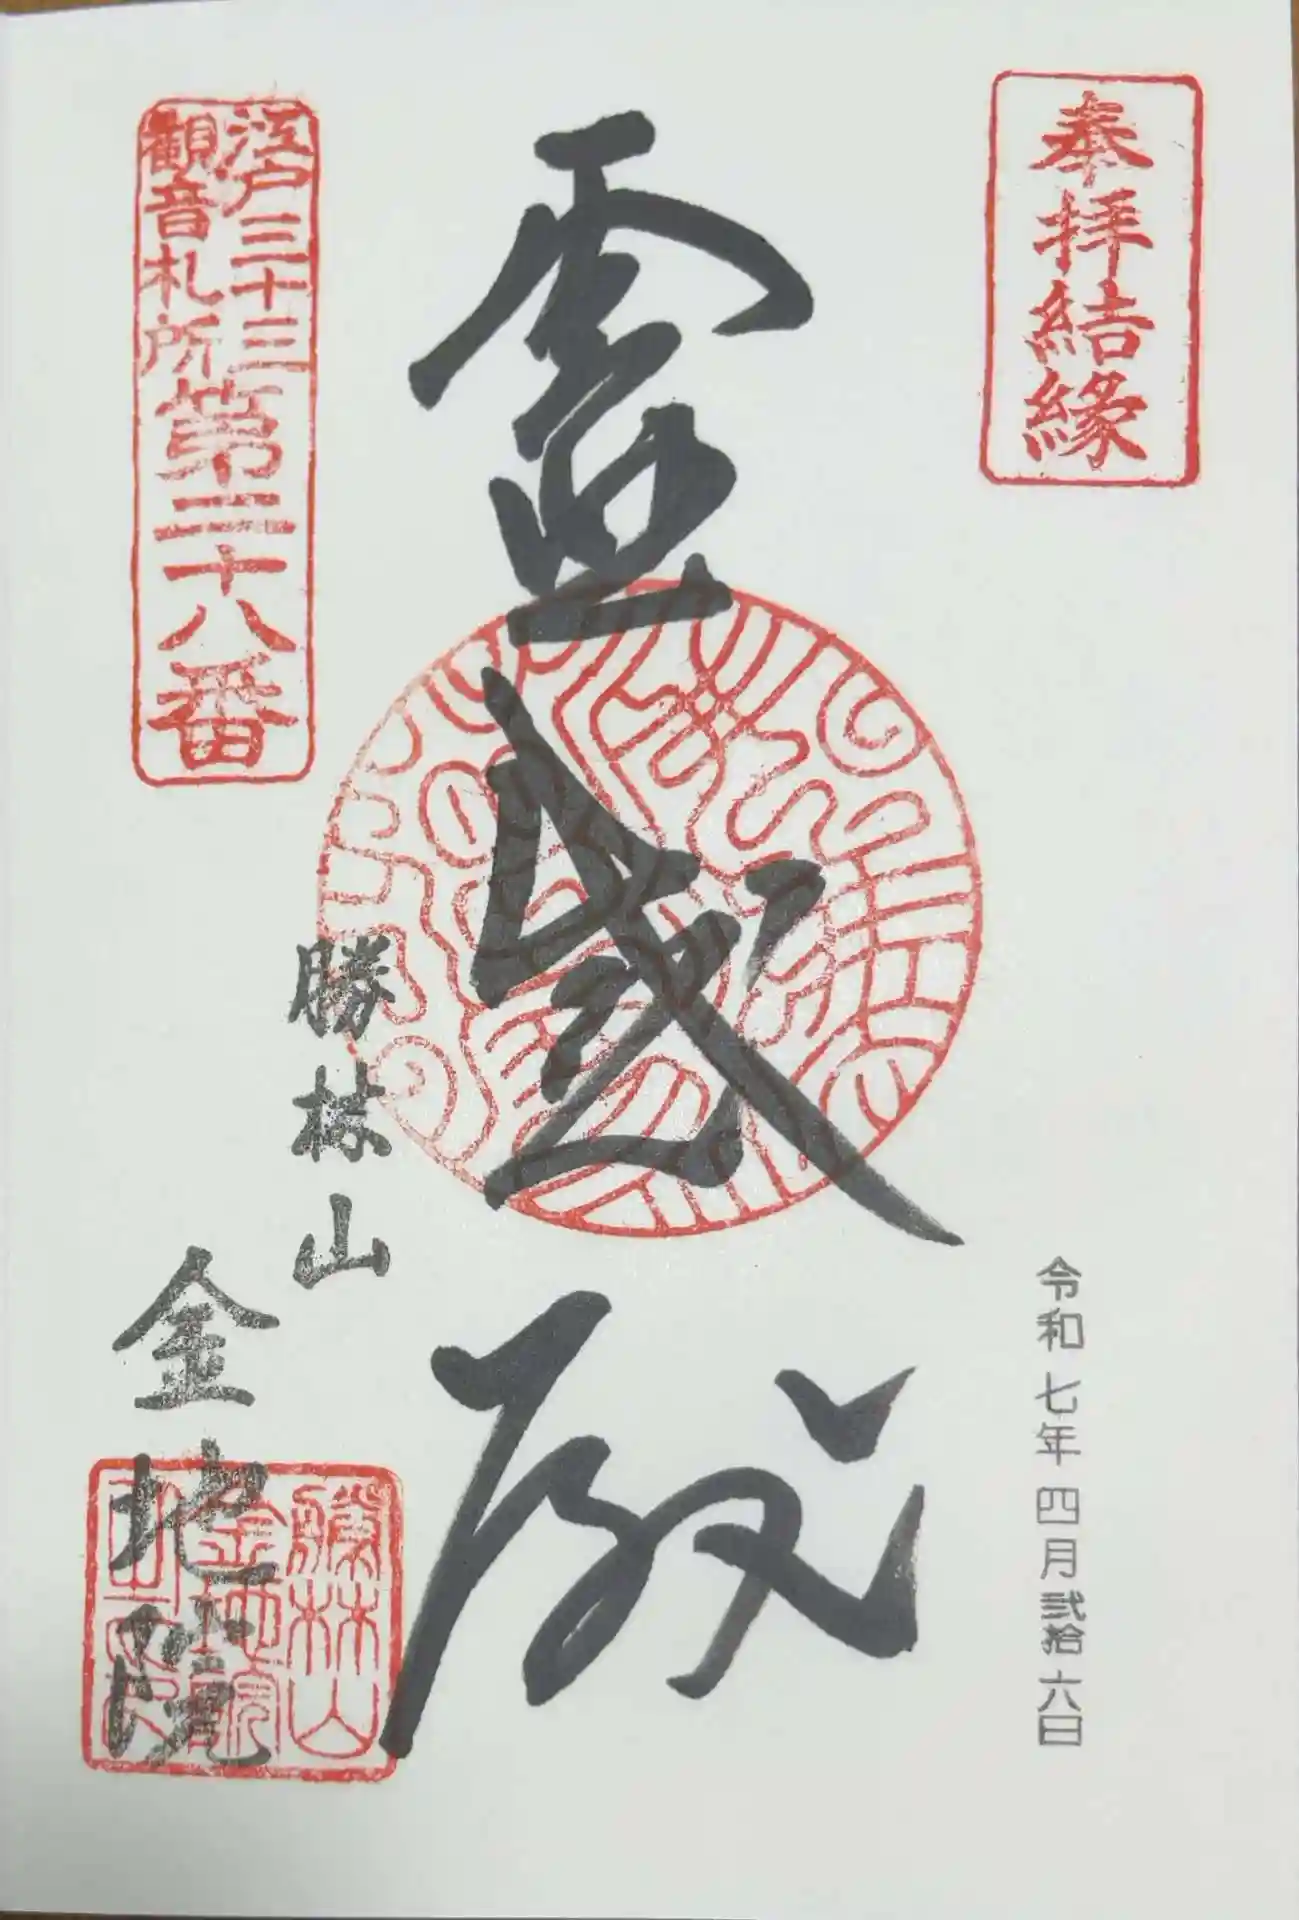 奉拝結縁
令和七年四月弐拾六日
霊感殿
江戸三十三
観音札所
第二十八番
勝林山
金地院
勝林山
金地院